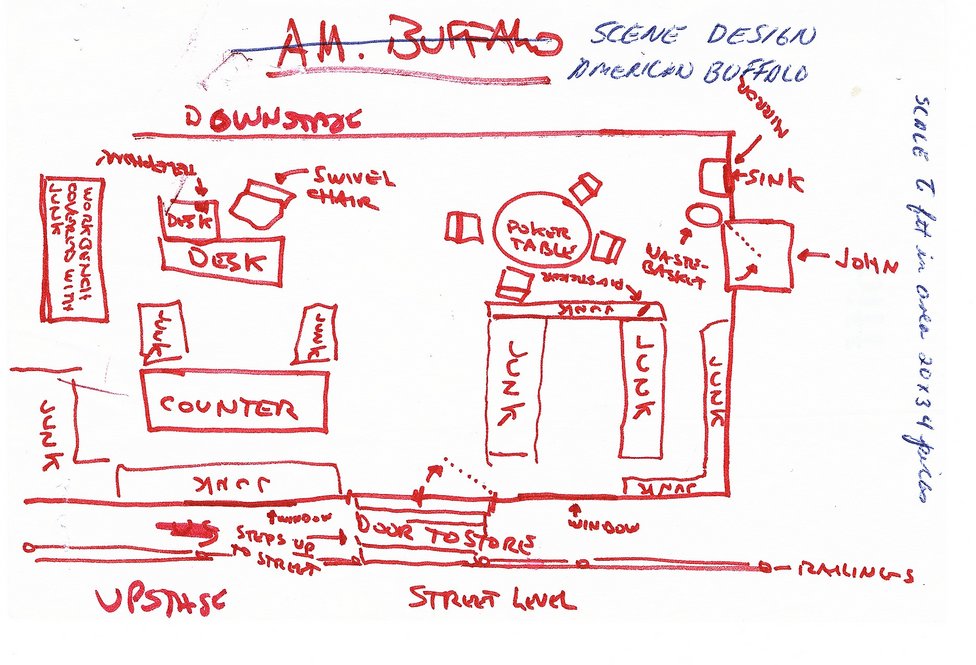 AM. BUFFALO
SCENE DESIGN
AMERICAN BUFFALO
DOWNSTAGE
MIRROR
SINK
SWIVEL
CHAIR
DESK
DESK
WORKBENCH
COVERED WITH
JUNK
POKER
TABLE
WASTE-
BASKET
JOHN
JUNK
JUNK
JUNK
JUNK
JUNK
JUNK
COUNTER
JUNK
JUNK
JUNK
WINDOW
DOOR TO STORE
WINDOW
STEPS UP
TO STREET
RAILINGS
UPSTAGE
STREET LEVEL
SCALE To fit in area 20x34 picas